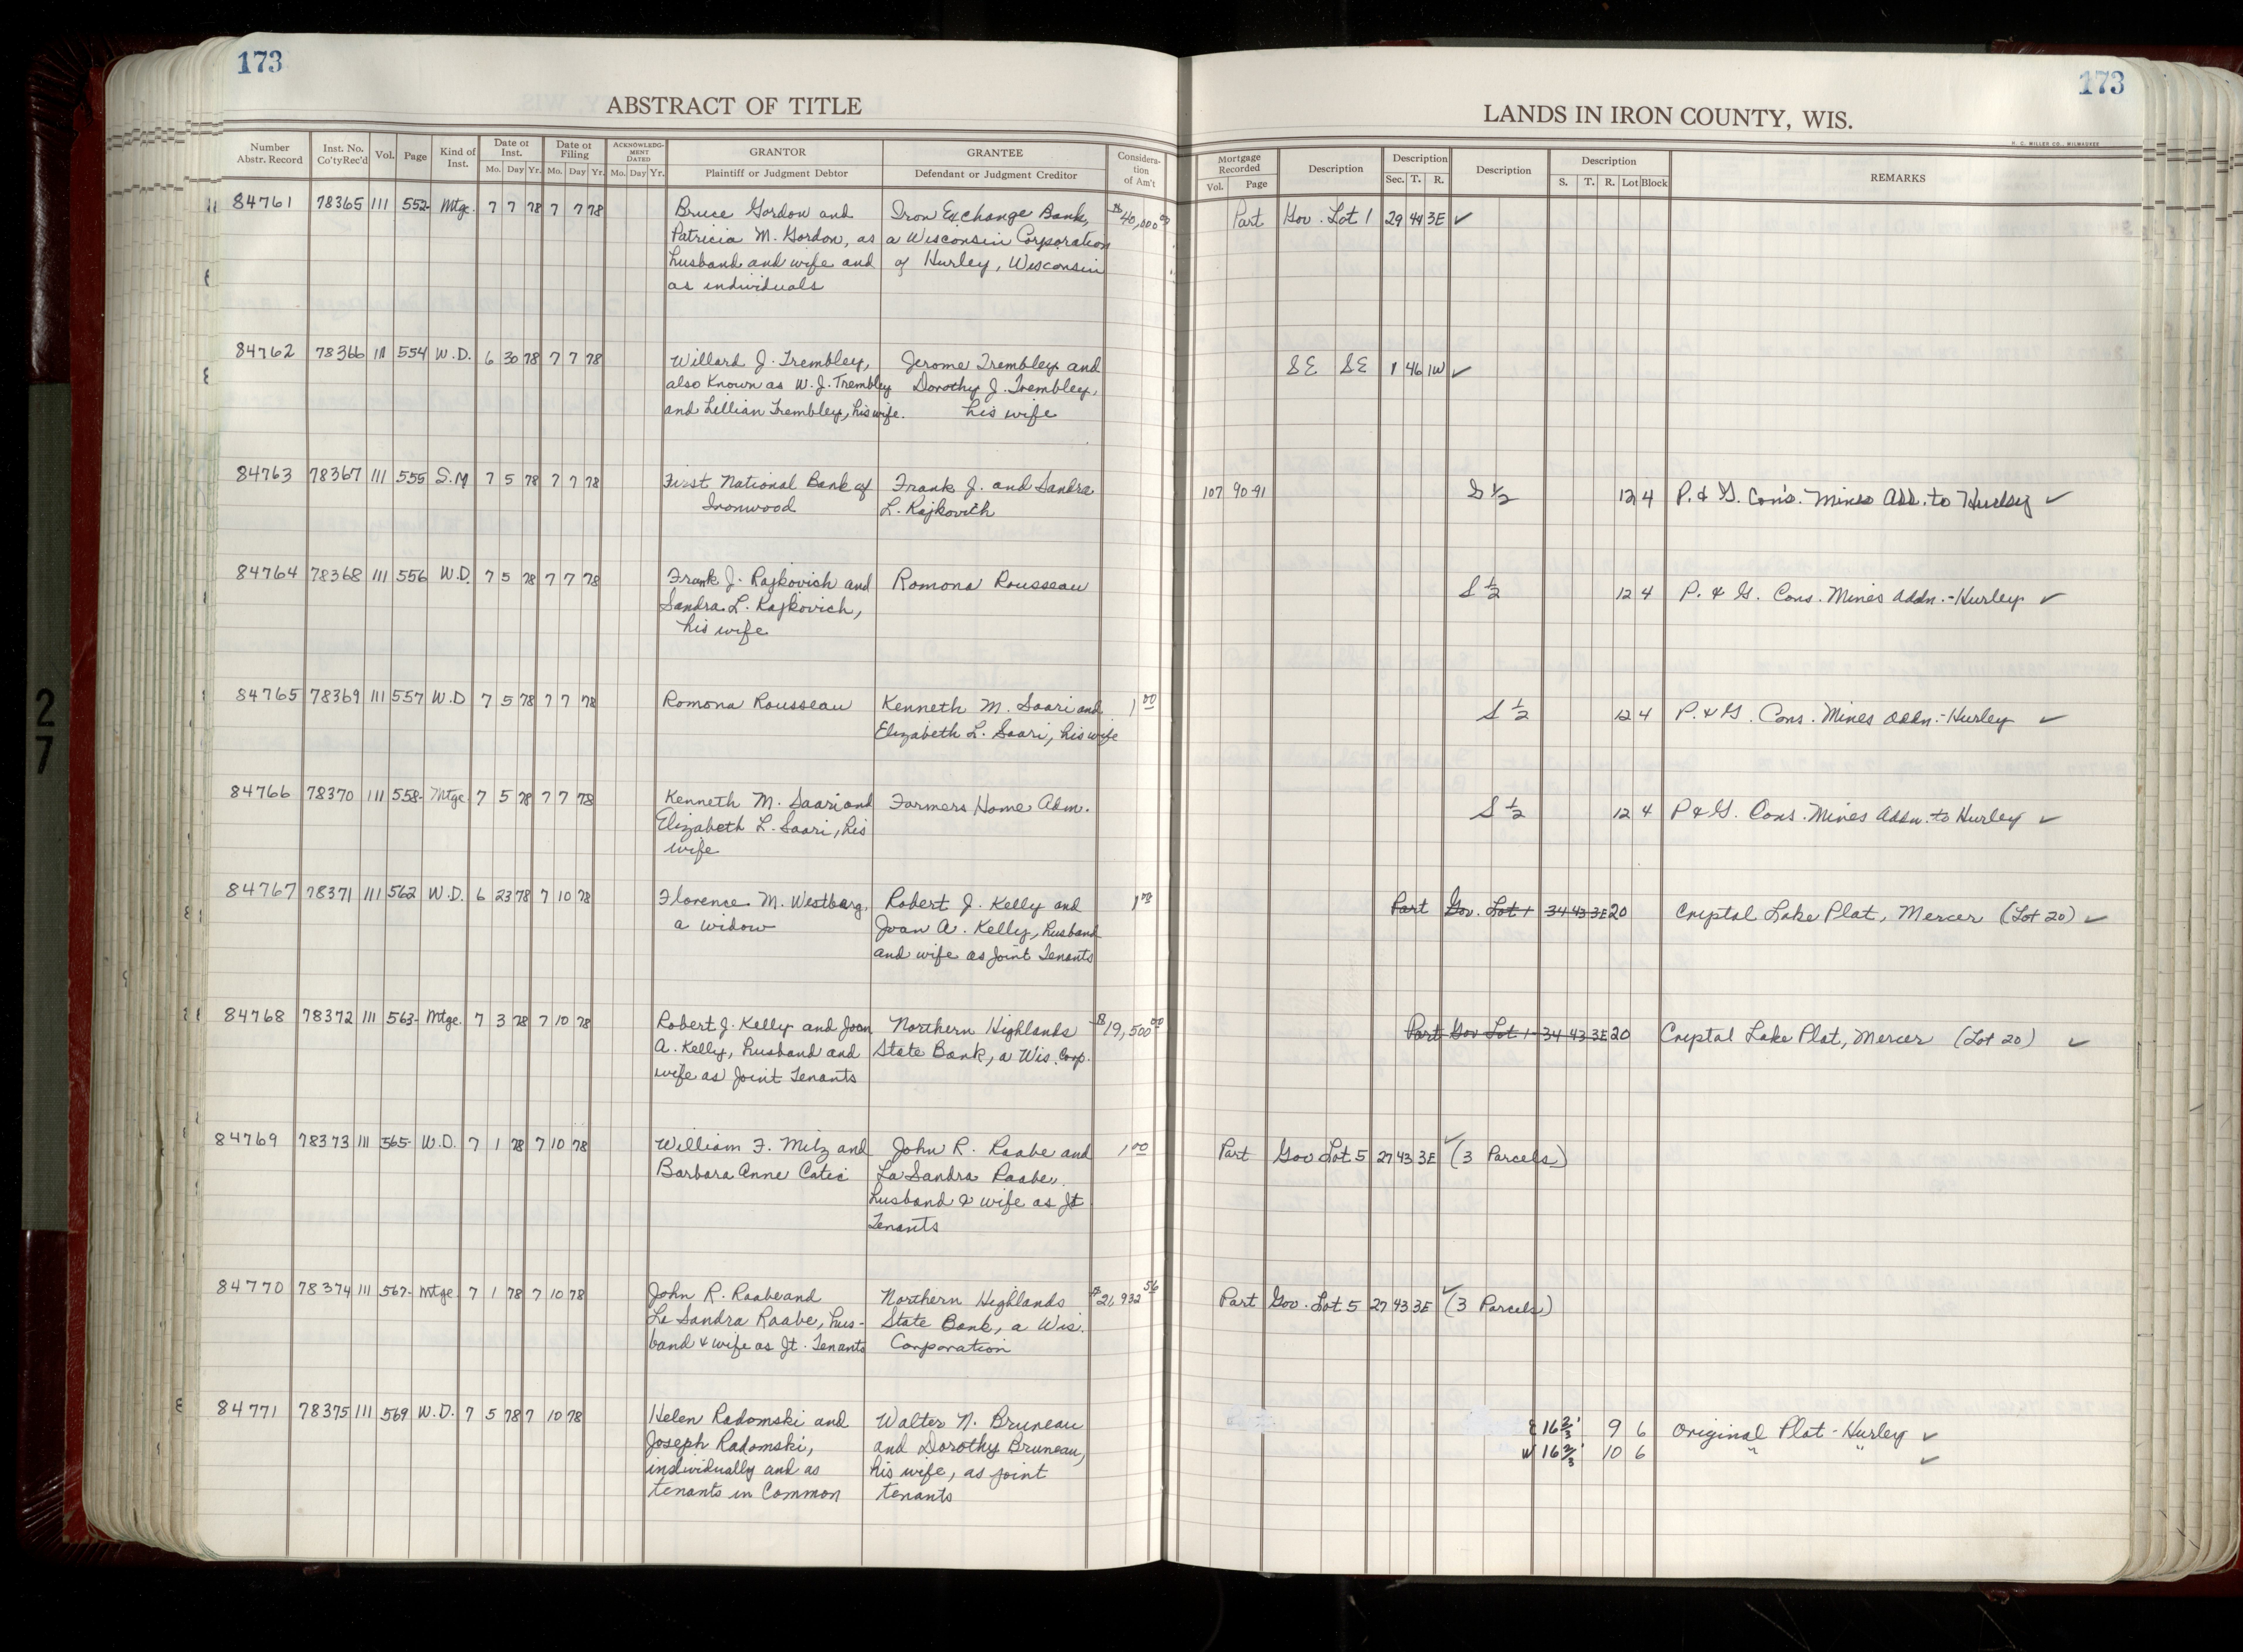 173
173
ABSTRACT OF TITLE
LANDS IN IRON COUNTY, WIS.
H. C. MILLER CO., MILWAUKEE
Number Abstr. Record Inst. No. Co'ty Rec'd Vol. Page Kind of Inst. Date of Inst. Mo. Day Yr. Date of Filing Mo. Day Yr. ACKNOWLEDGMENT DATED Mo. Day Yr. GRANTOR Plaintiff or Judgment Debtor GRANTEE Defendant or Judgment Creditor Consideration of Am't Mortgage Recorded Vol. Page Description Description Sec. T. R. Description Description S. T. R. Lot Block REMARKS
84761 78365 111 552- Mtge. 7 7 78 7 7 78 Bruce Gordon and Iron Exchange Bank, $40,000.00 Part Gov. Lot 1 29 44 3E ✓
Patricia M. Gordon, as a Wisconsin Corporation
husband and wife and of Hurley, Wisconsin
as individuals
84762 78366 111 554 W.D. 6 30 78 7 7 78 Willard J. Trembley, Jerome Trembley and SE SE 1 46 1W ✓
also Known as W. J. Trembley Dorothy J. Trembley,
and Lillian Trembley, his wife. his wife
84763 78367 111 555 S.M 7 5 78 7 7 78 First National Bank of Frank J. and Sandra 107 90-91 S 1/2 12 4 P. & G. Con's. Mines Add. to Hurley ✓
Ironwood L. Rajkovich
84764 78368 111 556 W.D. 7 5 78 7 7 78 Frank J. Rajkovich and Romona Rousseau S 1/2 12 4 P. & G. Cons. Mines Addn.-Hurley ✓
Sandra L. Rajkovich,
his wife
84765 78369 111 557 W.D 7 5 78 7 7 78 Romona Rousseau Kenneth M. Saari and 1 00 S 1/2 12 4 P. & G. Cons. Mines Addn.-Hurley ✓
Elizabeth L. Saari, his wife
84766 78370 111 558- Mtge. 7 5 78 7 7 78 Kenneth M. Saari and Farmers Home Adm. S 1/2 12 4 P & G. Cons. Mines Addn. to Hurley ✓
Elizabeth L. Saari, his
wife
84767 78371 111 562 W.D. 6 23 78 7 10 78 Florence M. Westberg, Robert J. Kelly and 1 00 Part Gov. Lot 1 34 43 3E 20 Crystal Lake Plat, Mercer (Lot 20) ✓
a widow Joan A. Kelly, husband
and wife as Joint Tenants
84768 78372 111 563- Mtge. 7 3 78 7 10 78 Robert J. Kelly and Joan Northern Highlands $19,500 00 Part Gov Lot 1 34 43 3E 20 Crystal Lake Plat, Mercer (Lot 20) ✓
A. Kelly, husband and State Bank, a Wis. Corp.
wife as Joint Tenants
84769 78373 111 565- W.D. 7 1 78 7 10 78 William F. Milz and John R. Raabe and 1 00 Part Gov Lot 5 27 43 3E ✓ (3 Parcels)
Barbara Anne Catec La Sandra Raabe,
husband & wife as Jt
Tenants
84770 78374 111 567- Mtge 7 1 78 7 10 78 John R. Raabe and Northern Highlands $21,932 56 Part Gov. Lot 5 27 43 3E ✓ (3 Parcels)
La Sandra Raabe, hus- State Bank, a Wis.
band & wife as Jt. Tenants Corporation
84771 78375 111 569 W.D. 7 5 78 7 10 78 Helen Radomski and Walter N. Bruneau E 16 2/3' 9 6 Original Plat - Hurley ✓
Joseph Radomski, and Dorothy Bruneau, W 16 2/3' 10 6 " " ✓
individually and as his wife, as joint
tenants in Common tenants
27